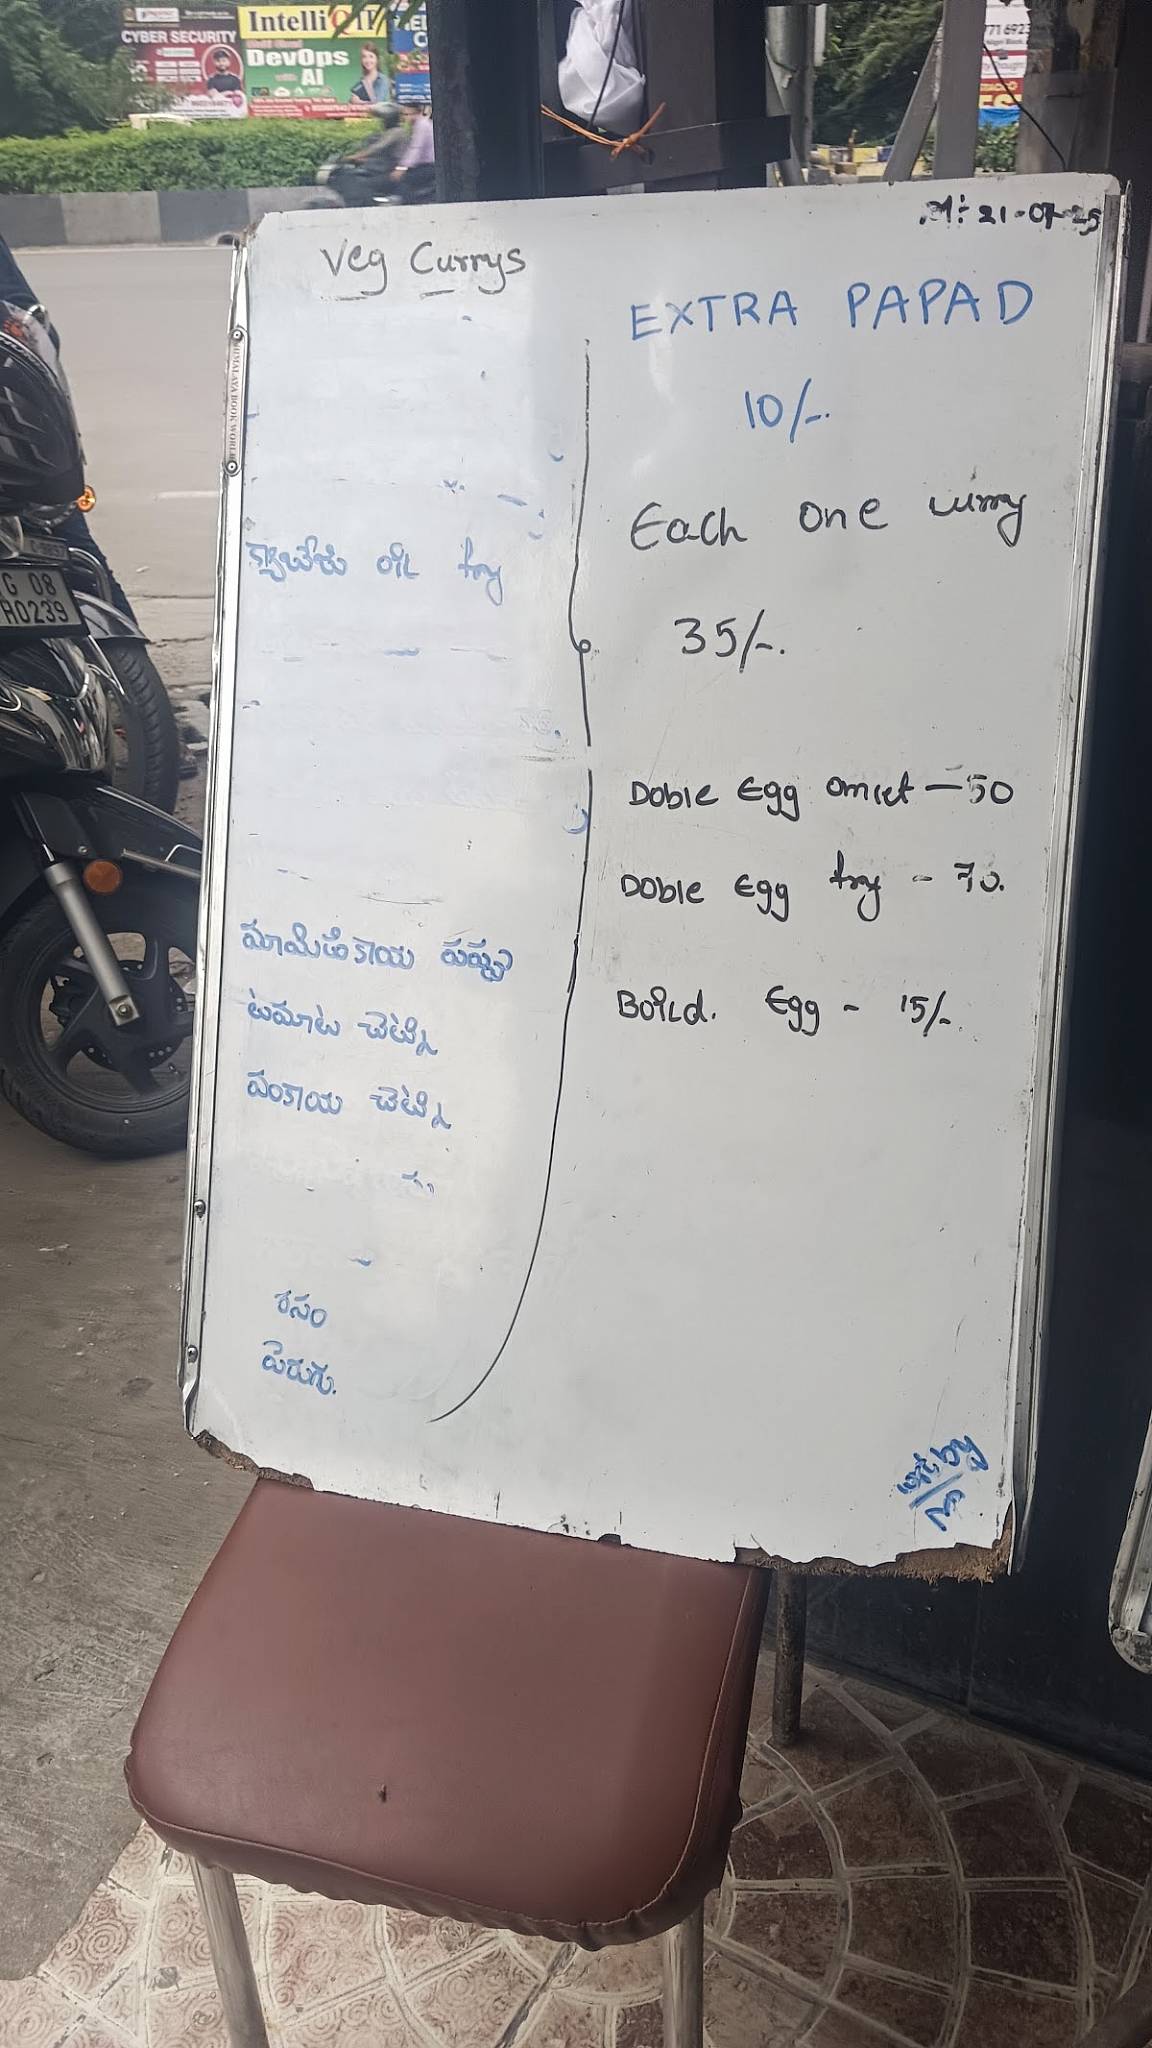 CYBER SECURITY
IntelliQ IT
DevOps
with
AI
HIMALAYA BOOK WORLD
G 08
H0239
21-07-25
Veg Currys
క్యాబేజి ఆలు fry
మామిడికాయ పప్పు
టమాట చెట్ని
వంకాయ చెట్ని
రసం
పెరుగు.
EXTRA PAPAD
10/-.
Each one curry
35/-.
Doble Egg omlet - 50
Doble Egg fry - 70.
Boild. Egg - 15/-.